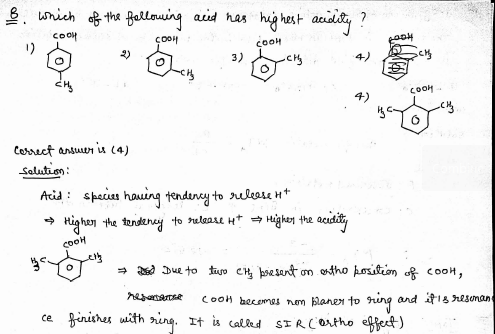 Q. Which of the following acid has highest acidity?
1) COOH CH₃
2) COOH CH₃
3) COOH CH₃
4) COOH CH₃
4) COOH H₃C CH₃
Correct answer is (4)
Solution:
Acid: species having tendency to release H⁺
⇒ Higher the tendency to release H⁺ ⇒ Higher the acidity
COOH H₃C CH₃
⇒ Due to two CH₃ present on ortho position of COOH,
COOH becomes non planer to ring and it's resonan
ce finishes with ring. It is called SIR (ortho effect)